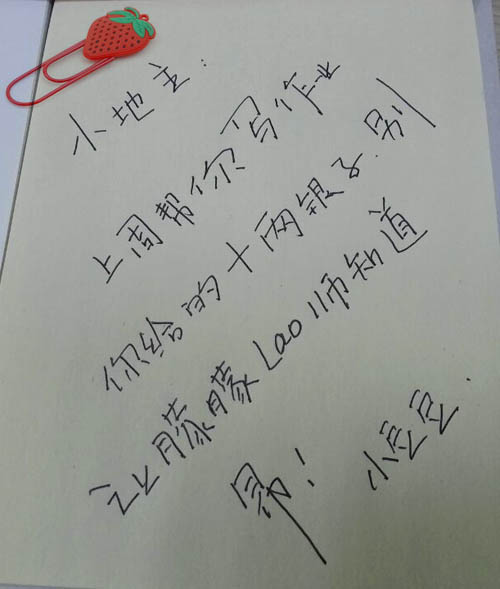 小地主：
上周帮你写作业
你给的十两银子.别
让朦朦Lao师知道
昂！
小豆豆.